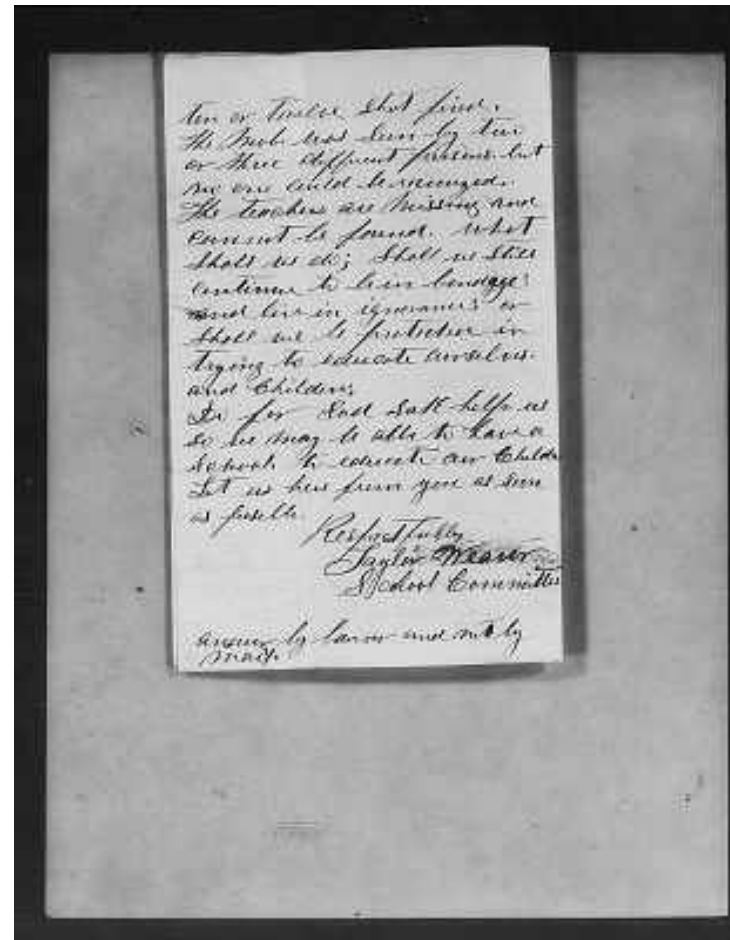 ten or twelve shot fired.
The Mob was seen by two
or three different persons but
no one could be recognized.
The teachers are missing and
cannot be found. What
shall we do; Shall we still
continue to live in bondage;
and live in ignorance; or
shall we be protection in
trying to educate ourselves
and Children;
Do for God sake help us
so we may be able to have a
schools to educate our Childr
Let us hear from you as soon
as possible.
Respectfully
Taylor Weaver
School Committee
answer by bearer and not by
mail.